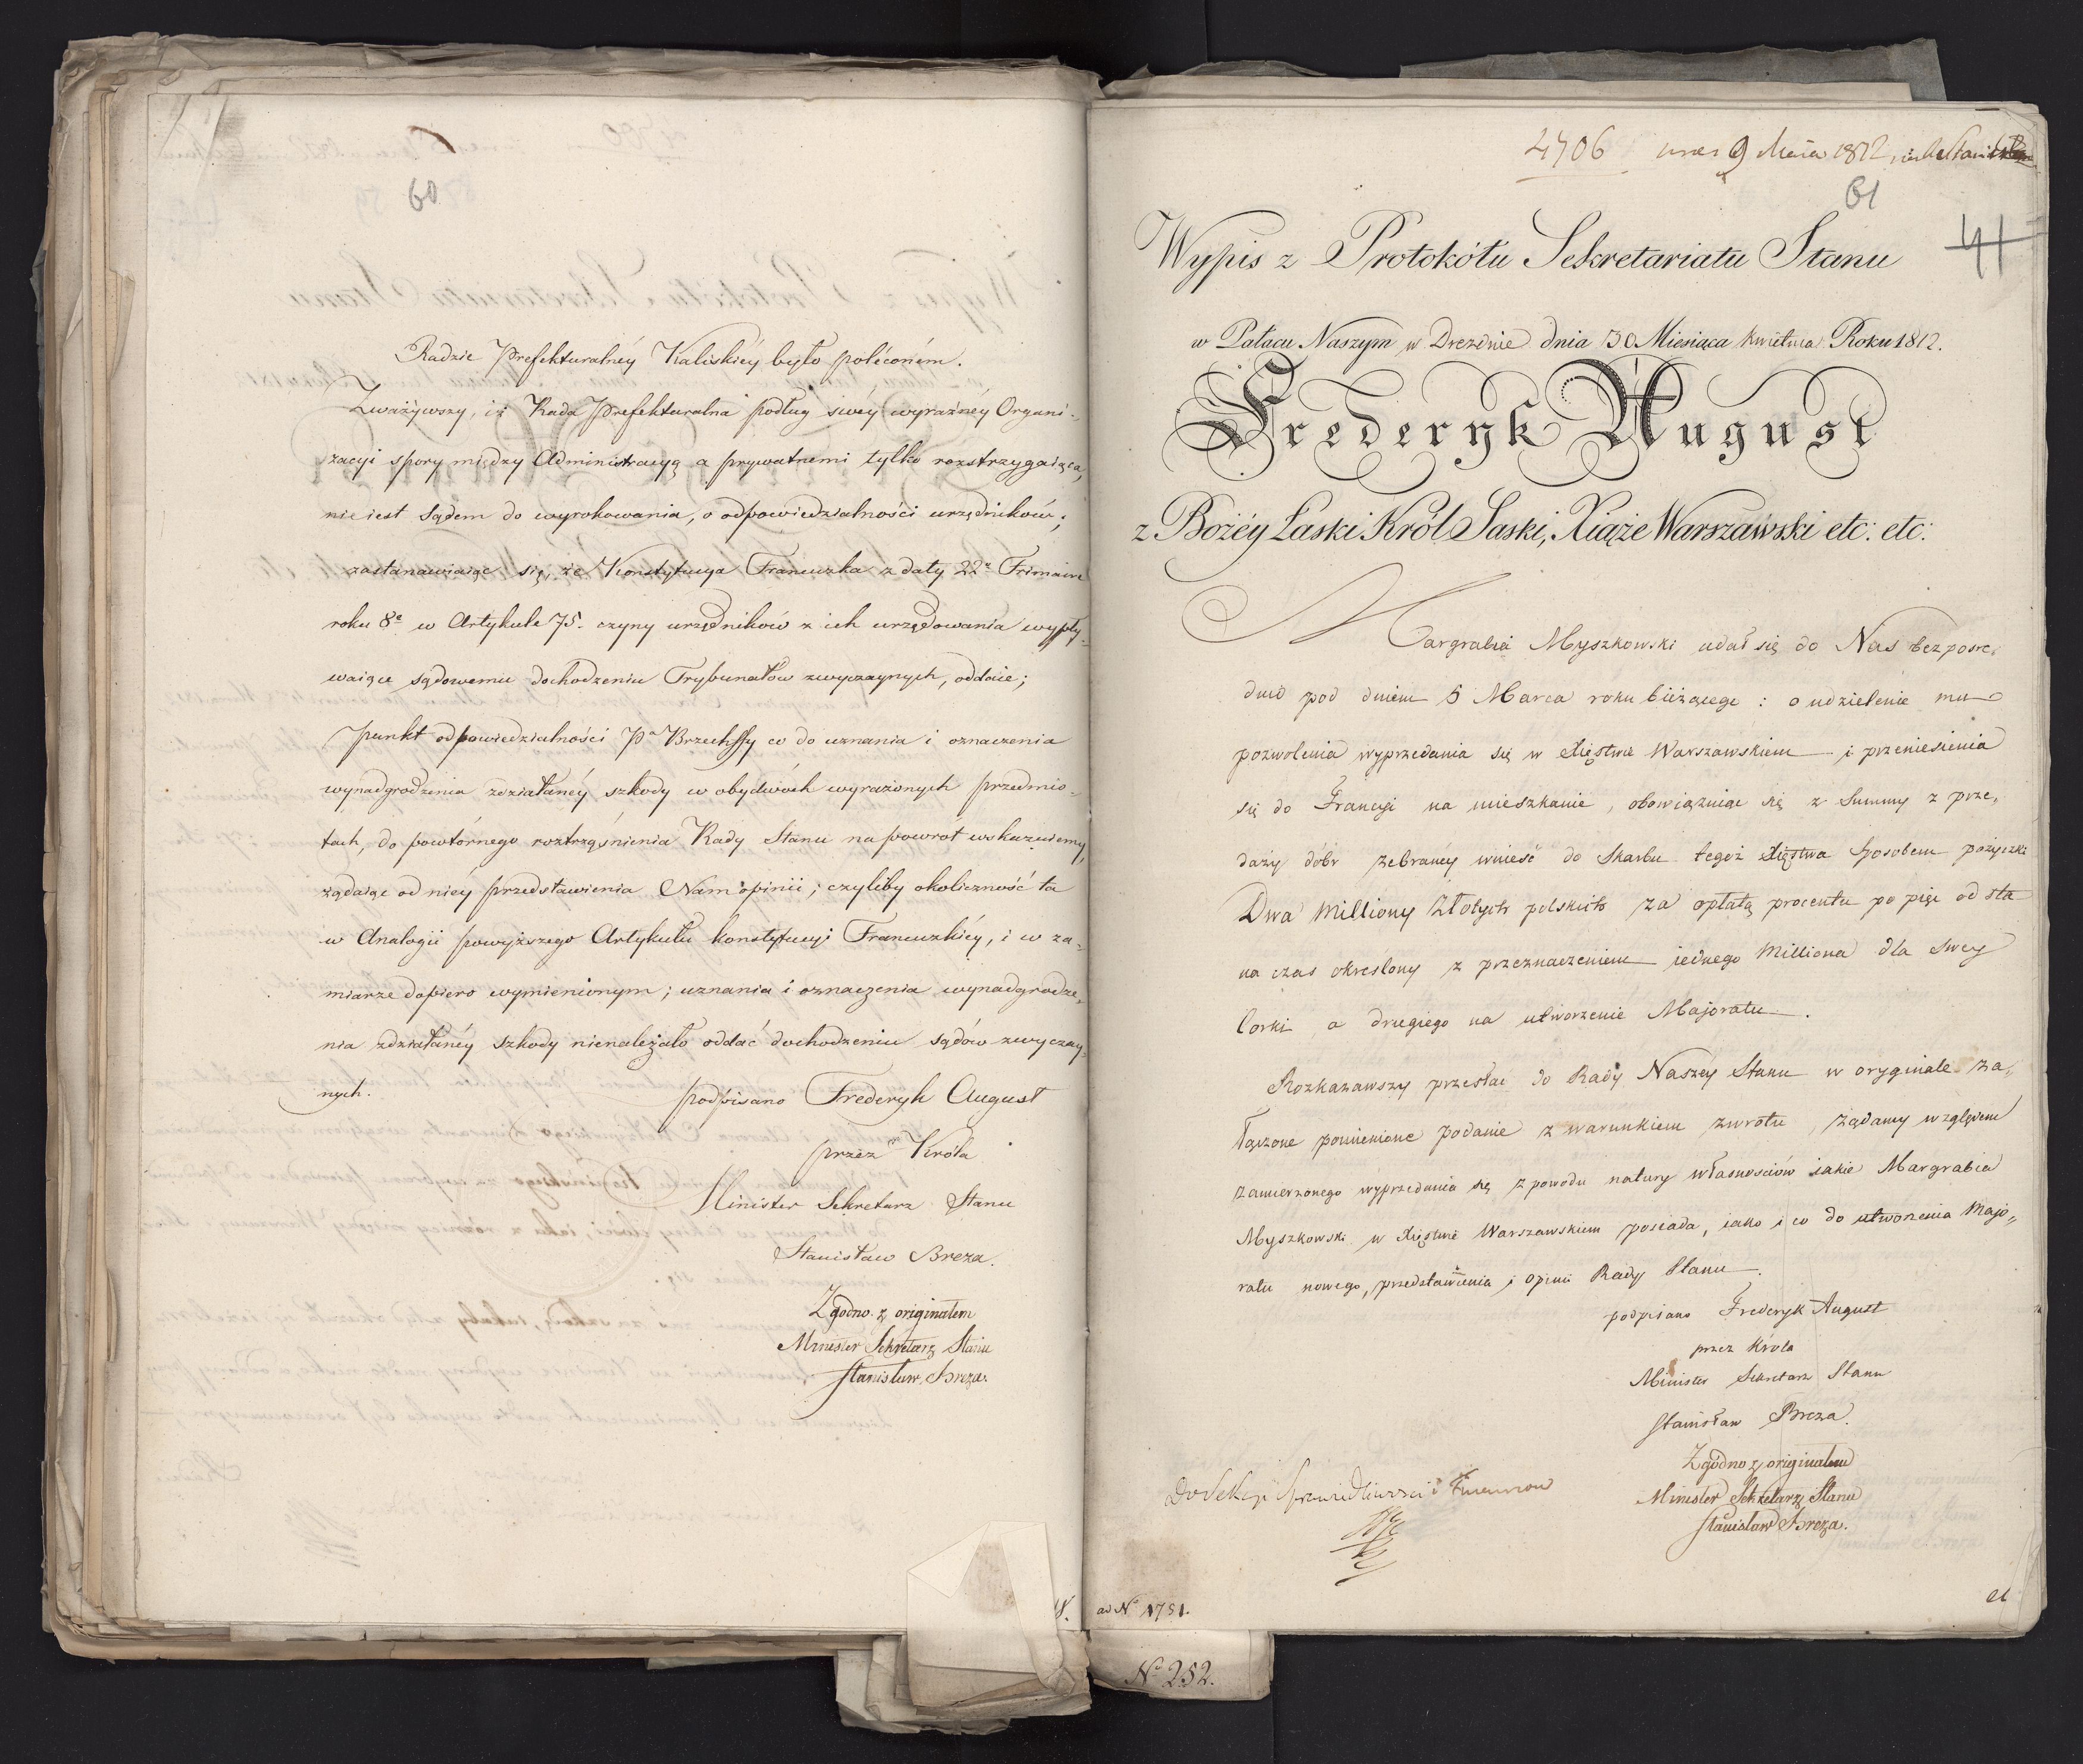 60
Radzie Prefekturalnéy Kaliskiéy było poléconém.
Zważywszy, iż Rada Prefekturalna podług swéy wyraźnéy Organi-
zacyi spory między Administracyą a prywatnemi tylko rozstrzygaiąca,
nie iest Sądem do wyrokowania, o odpowiedzialności urzędników;
zastanawiaiąc się, że Konstytucya Francuzka z daty 22º Frimaire
roku 8º w Artykule 75. czyny urzędników z ich urzędowania wypły-
waiące sądowemu dochodzeniu Trybunałów zwyczaynych, oddaie;
Punkt odpowiedzialności Pª Brzechffy co do uznania i oznaczenia
wynadgrodzenia zdziałanéy szkody w obydwóch wyrażonych przedmio-
tach, do powtórnego roztrząśnienia Rady Stanu na powrót wskazuiemy,
żądaiąc od niéy przedstawienia Nam opinii; czyliby okoliczność ta
w Analogii powyższego Artykułu konstytucyi Francuzkiéy, i w za-
miarze dopiero wymienionym; uznania i oznaczenia wynadgrodze-
nia zdziałanéy szkody nienależało oddać dochodzeniu sądów zwyczay-
nych.
podpisano Frederyk August
przez Króla
Minister Sekretarz Stanu
Stanisław Breza.
Zgodno z originałem
Minister Sekretarz Stanu
Stanisław Breza.
4706 9 Maia 1812
61
41
Wypis z Protokółu Sekretariatu Stanu
w Pałacu Naszym w Dreźnie dnia 30 Miesiąca Kwietnia Roku 1812.
Frederyk August
z Bożéy Łaski Król Saski, Xiąże Warszawski etc: etc:
Margrabia Myszkowski udał się do Nas bezpośre-
dnio pod dniem 5 Marca roku bieżącego: o udzielenie mu
pozwolenia wyprzedania się w Xięstwie Warszawskiem i przeniesienia
się do Francyi na mieszkanie, obowiązuiąc się z Summy z prze-
daży dóbr zebranéy wnieść do Skarbu tegoż Xięstwa sposobem pożyczki
Dwa Milliony Złotych polskich za opłatą procentu po pięć od sta
na czas określony z przeznaczeniem iednego Milliona dla swey
Corki a drugiego na utworzenie Majoratu.
Rozkazawszy przesłać do Rady Naszéy Stanu w oryginale za-
łączone pomienione podanie z warunkiem zwrotu, żądamy względem
zamierzonego wyprzedania się z powodu natury własnościów iakie Margrabia
Myszkowski w Xięstwie Warszawskiem posiada, iako i co do utworzenia Majo-
ratu nowego, przedstawienia i opinii Rady Stanu.
podpisano Frederyk August
przez Króla
Minister Sekretarz Stanu
Stanisław Breza.
Zgodno z originałem
Minister Sekretarz Stanu
Stanisław Breza.
Do Sekcyi Sprawiedliwości i
ad Nº 1751.
Nº 252.